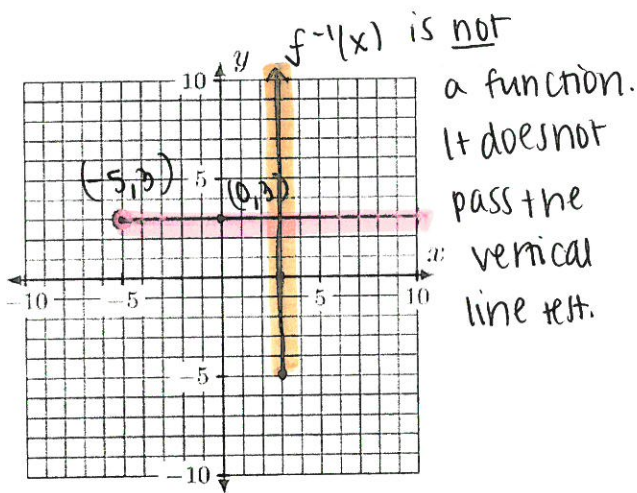 f⁻¹(x) is not
a function.
It does not
pass the
vertical
line test.
y
10
(-5,3)
5
(0,3)
x
-10
-5
5
10
-5
-10